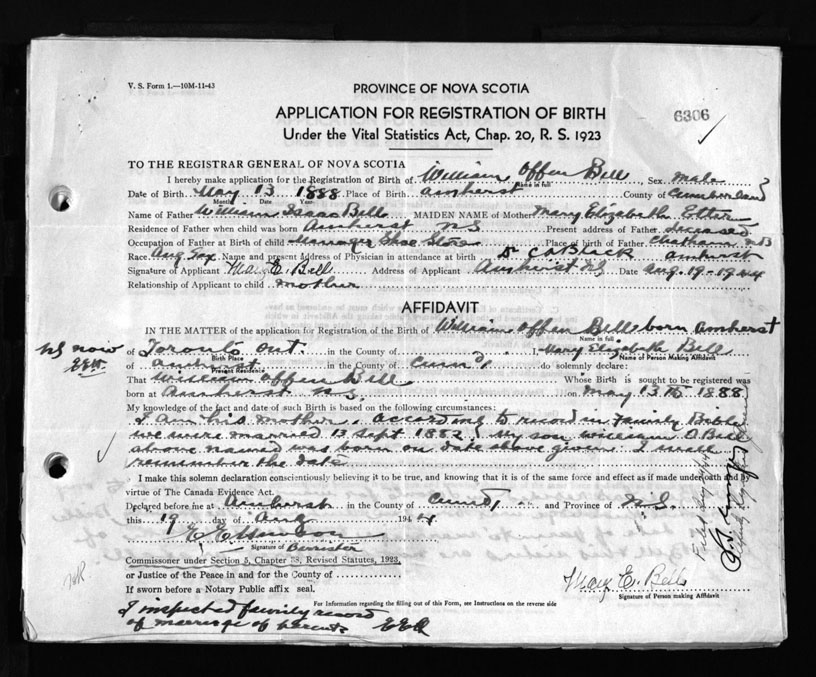 V. S. Form 1.—10M-11-43
PROVINCE OF NOVA SCOTIA
6306
APPLICATION FOR REGISTRATION OF BIRTH
Under the Vital Statistics Act, Chap. 20, R. S. 1923
TO THE REGISTRAR GENERAL OF NOVA SCOTIA
I hereby make application for the Registration of Birth of William Offen Bell, Sex male
Name in full
Date of Birth May 13 1888 Place of Birth Amherst County of Cumberland
Month Date Year
Name of Father William Isaac Bell MAIDEN NAME of Mother Mary Elizabeth Etter
Residence of Father when child was born Amherst N S Present address of Father deceased
Occupation of Father at Birth of child Manager Shoe Store Place of birth of Father Chatham NB
Race Ang Sax Name and present Address of Physician in attendance at birth Dr C A Black Amherst
Signature of Applicant Mary E. Bell Address of Applicant Amherst NS Date Aug. 19-1944
Relationship of Applicant to child mother
AFFIDAVIT
IN THE MATTER of the application for Registration of the Birth of William Offen Bell born Amherst
Name in full
NS now of Toronto Ont. in the County of I, Mary Elizabeth Bell
Birth Place
Name of Person Making Affidavit
of Amherst in the County of Cumb'd, do solemnly declare:
Present Residence
That William Offen Bell Whose Birth is sought to be registered was
born at Amherst N.S. on May 13th 1888
My knowledge of the fact and date of such Birth is based on the following circumstances:
I am his mother. According to record in Family Bible
we were married 13 Sept 1882. My son William O Bell
above named was born on date above given. I well
remember the date
I make this solemn declaration conscientiously believing it to be true, and knowing that it is of the same force and effect as if made under oath and by
virtue of The Canada Evidence Act.
Declared before me at Amherst in the County of Cumb'd, and Province of N.S.
this 19 day of Aug 1944
Signature of Barrister
Commissioner under Section 5, Chapter 38, Revised Statutes, 1923,
or Justice of the Peace in and for the County of
If sworn before a Notary Public affix seal.
Mary E. Bell
Signature of Person making Affidavit
For Information regarding the filling out of this Form, see Instructions on the reverse side
I inspected family record
of marriage of parents